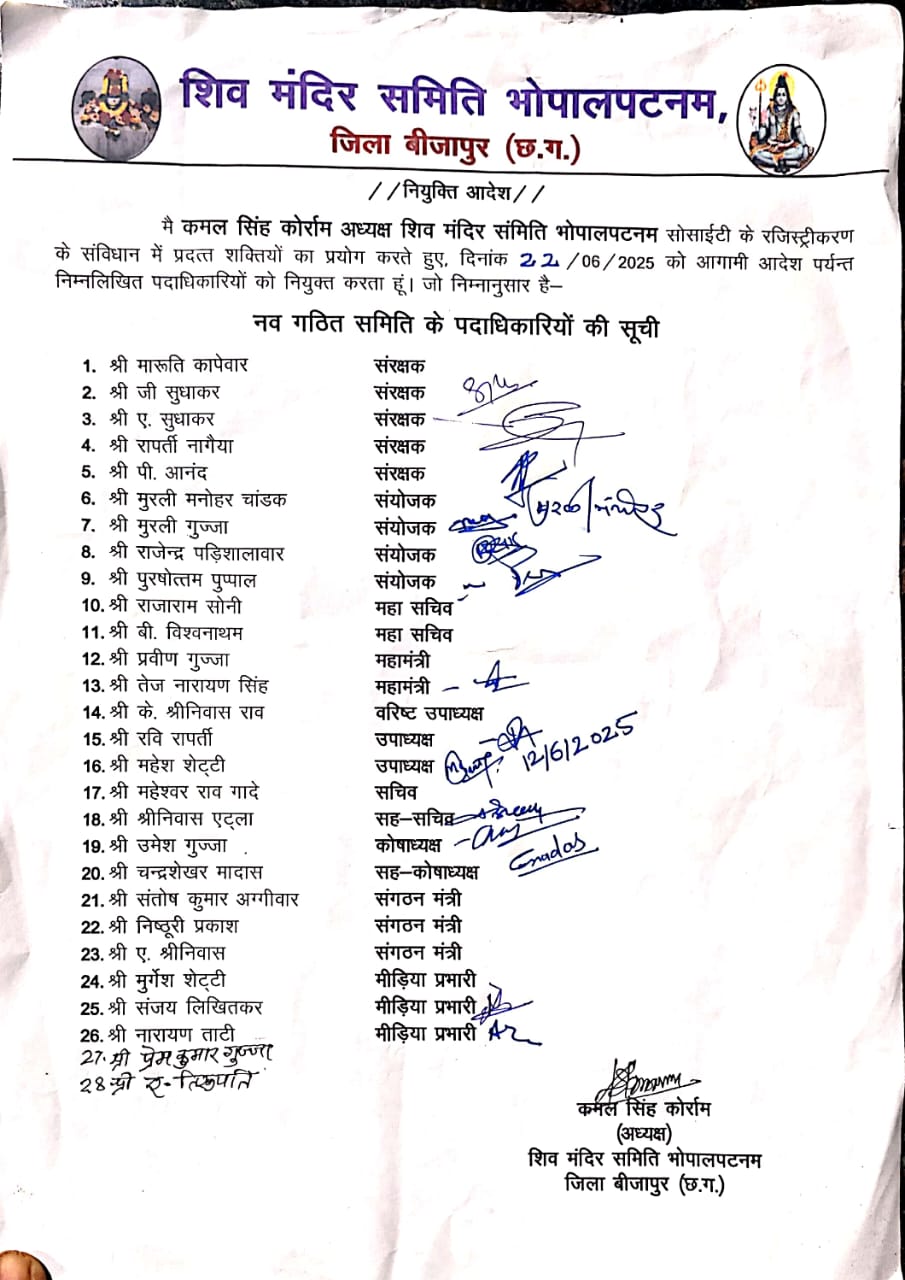 शिव मंदिर समिति भोपालपटनम,
जिला बीजापुर (छ.ग.)
//नियुक्ति आदेश//
मै कमल सिंह कोर्राम अध्यक्ष शिव मंदिर संमिति भोपालपटनम सोसाईटी के रजिस्ट्रीकरण
के संविधान में प्रदत्त शक्तियों का प्रयोग करते हुए, दिनांक 22/06/2025 को आगामी आदेश पर्यन्त
निम्नलिखित पदाधिकारियों को नियुक्त करता हूं। जो निम्नानुसार है–
नव गठित समिति के पदाधिकारियों की सूची
1. श्री मारूति कापेवार संरक्षक
2. श्री जी सुधाकर संरक्षक
3. श्री ए. सुधाकर संरक्षक
4. श्री रापर्ती नागैया संरक्षक
5. श्री पी. आनंद संरक्षक
6. श्री मुरली मनोहर चांडक संयोजक
7. श्री मुरली गुज्जा संयोजक
8. श्री राजेन्द्र पड़िशालावार संयोजक
9. श्री पुरषोत्तम पुप्पाल संयोजक
10. श्री राजाराम सोनी महा सचिव
11. श्री बी. विश्वनाथम महा सचिव
12. श्री प्रवीण गुज्जा महामंत्री
13. श्री तेज नारायण सिंह महामंत्री
14. श्री के. श्रीनिवास राव वरिष्ट उपाध्यक्ष
15. श्री रवि रापर्ती उपाध्यक्ष
16. श्री महेश शेट्टी उपाध्यक्ष 12/6/2025
17. श्री महेश्वर राव गादे सचिव
18. श्री श्रीनिवास एट्ला सह–सचिव
19. श्री उमेश गुज्जा कोषाध्यक्ष
20. श्री चन्द्रशेखर मादास सह–कोषाध्यक्ष
21. श्री संतोष कुमार अग्गीवार संगठन मंत्री
22. श्री निष्ठूरी प्रकाश संगठन मंत्री
23. श्री ए. श्रीनिवास संगठन मंत्री
24. श्री मुर्गेश शेट्टी मीडिया प्रभारी
25. श्री संजय लिखितकर मीडिया प्रभारी
26. श्री नारायण ताटी मीडिया प्रभारी
27. श्री प्रेम कुमार गुज्जा
28 श्री ए. तिरूपति
कमल सिंह कोर्राम
(अध्यक्ष)
शिव मंदिर समिति भोपालपटनम
जिला बीजापुर (छ.ग.)